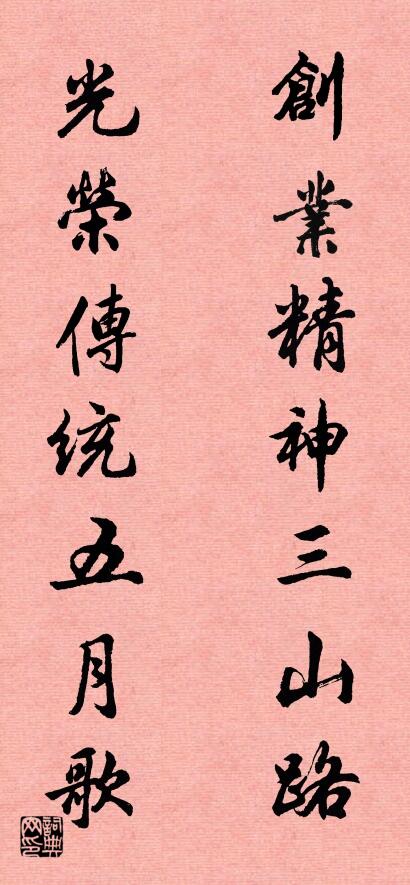 創業精神三山路
光榮傳統五月歌
詞典网印